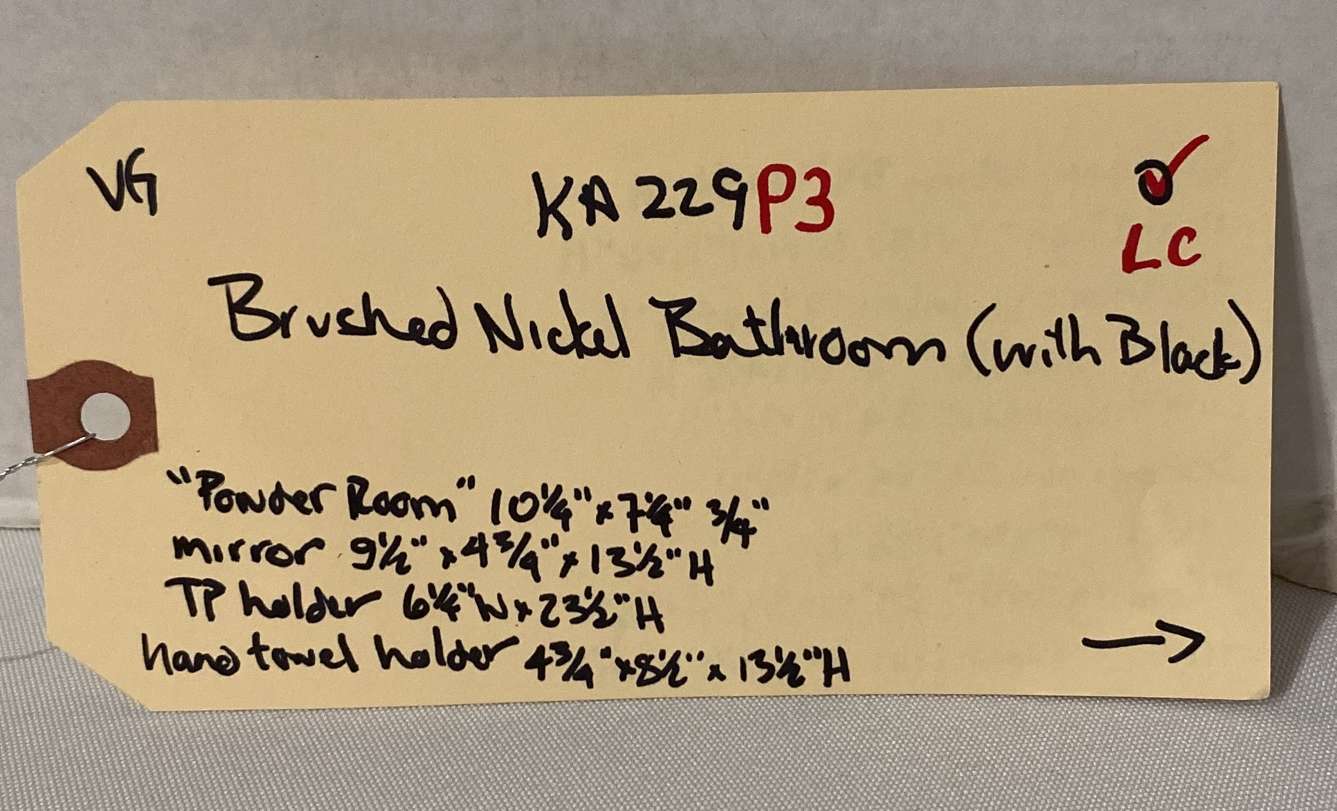 VG KA229P3
LC
Brushed Nickel Bathroom (with Black)
"Powder Room" 10¼" x 7¼" ¾"
mirror 9½" x 4¾" x 13½" H
TP holder 6¼" W x 23½" H
hand towel holder 4¾" x 8½" x 13½" H